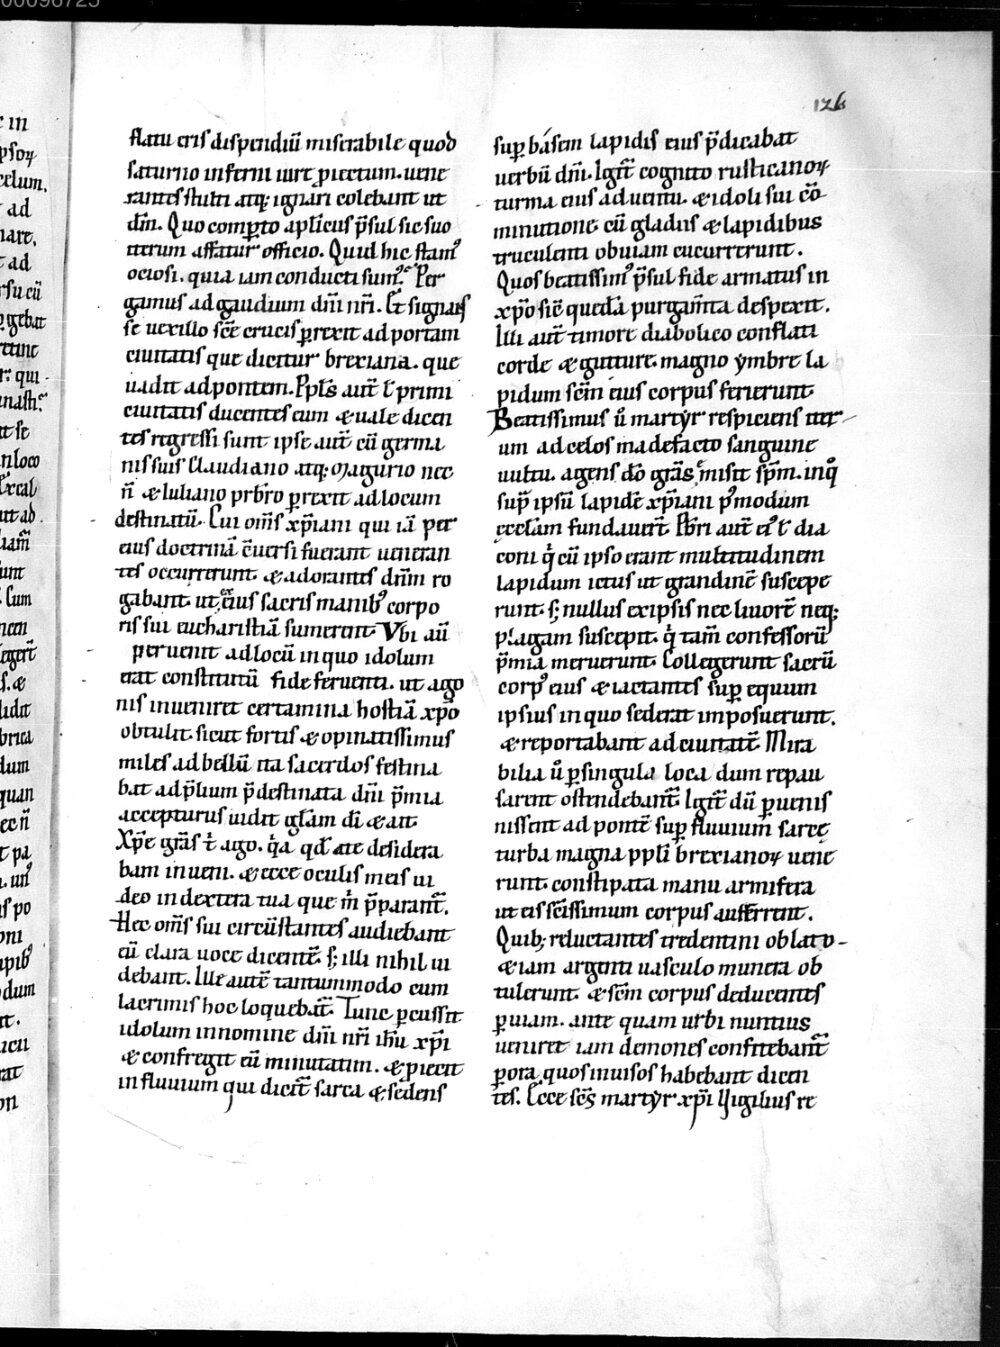 126
flatu eris dispendiū miserabile quod
saturno inferni iure ꝓiectum. uene
rantes stulti atq; ignari colebant ut
dm̄. Quo comꝑto aplicus p̄sul sic suo
iterum affatur officio. Quid hic stam᾽
ociosi. quia iam conducti sum᾽. Per
gamus ad gaudium dn̄i nr̄i. Et signans
se uexillo sc̄e crucis ꝑrexit ad portam
ciuitatis que dicitur brexiana. que
uadit ad pontem. Ppl̄s aut̄ l̄ primi
ciuitatis ducentes eum & uale dicen
tes regressi sunt ipse aut̄ cū germa
nis suis Claudiano atq; Magurio nec
n̄ & Iuliano prbr̄o ꝑrexit ad locum
destinatū. Cui om̄s xp̄iani qui iā per
eius doctrinā cūersi fuerant ueneran
tes occurrerunt. & adorantes dn̄m ro
gabant. ut ex eius sacris manib᾽ corpo
ris sui eucharistiā sumerent. Vbi aū
peruenit ad locū in quo idolum
erat constitutū fide feruenti. ut ago
nis inueniret certamina hostiā xp̄o
obtulit. sicut fortis & opinatissimus
miles ad bellū ita sacerdos festina
bat ad p̄lium p̄destinata dn̄i p̄mia
accepturus uidit gl̄am dī & ait.
Xp̄e grās t᾽ ago. q᾽a qd̄ a te desidera
bam inueni. & ecce oculis meis ui
deo in dextera tua que m᾽ p̄parant̄.
Hec om̄s sui circūstantes audiebant
cū clara uoce dicentē. s; illi nihil ui
debant. Ille autē tantummodo cum
lacrimis hoc loquebat̄. Tunc ꝑcussit
idolum in nomine dn̄i nr̄i ih̄u xp̄i
& confregit eū minutatim. & ꝓiecit
in fluuium qui dicit̄ sarca & sedens
suꝑ básem lapidis eius p̄dicabat
uerbū dn̄i. Igit̄ cognito rusticanoꝝ
turma eius aduentu. & idoli sui cō
minutione. cū gladiis & lapidibus
truculenti obuiam cucurrerunt.
Quos beatissim᾽ p̄sul fide armatus in
xp̄o sic̄ quedā purgam̄ta despexit.
Illi aut̄ timore diabolico conflati
corde & gutture. magno ẏmbre la
pidum sc̄m eius corpus ferierunt.
Beatissimus ū martẏr respiciens iter
um ad celos madefacto sanguine
uultu. agens dō grās. emisit sp̄m. inq᾽
sup̄ ipsū lapidē xp̄iani p᾽modum
ęccl̄am fundauert̄. Pbr̄i aut̄ ei᾽ l̄ dia
coni q᾽ cū ipso erant multitudinem
lapidum ictus ut grandinē suscepe
runt. s; nullus ex ipsis nec liuorē neq;
plagam suscepit. q᾽ tam̄ confessorū
p̄mia meruerunt. Collegerunt sacrū
corp᾽ eius & iactantes suꝑ equum
ipsius in quo sederat imposuerunt.
& reportabant ad ciuitatē. Mira
bilia ū ꝑ singula loca dum repau
sarent ostendebant̄. Igit̄ dū ꝑuenis
nissent ad pontē suꝑ fluuium sarcę
turba magna ppl̄i brexianoꝝ uene
runt. constipata manu armifera
ut eis sc̄issimum corpus aufferrent.
Quib; reluctantes tredentini oblato
& iam argenti uasculo munera ob
tulerunt. & sc̄m corpus deducentes
ꝑ uiam. ante quam urbi nuntius
ueniret iam demones confitebant̄
ꝑ ora quos inuisos habebant dicen
tes. Ecce sc̄s martẏr xp̄i Uigilius re